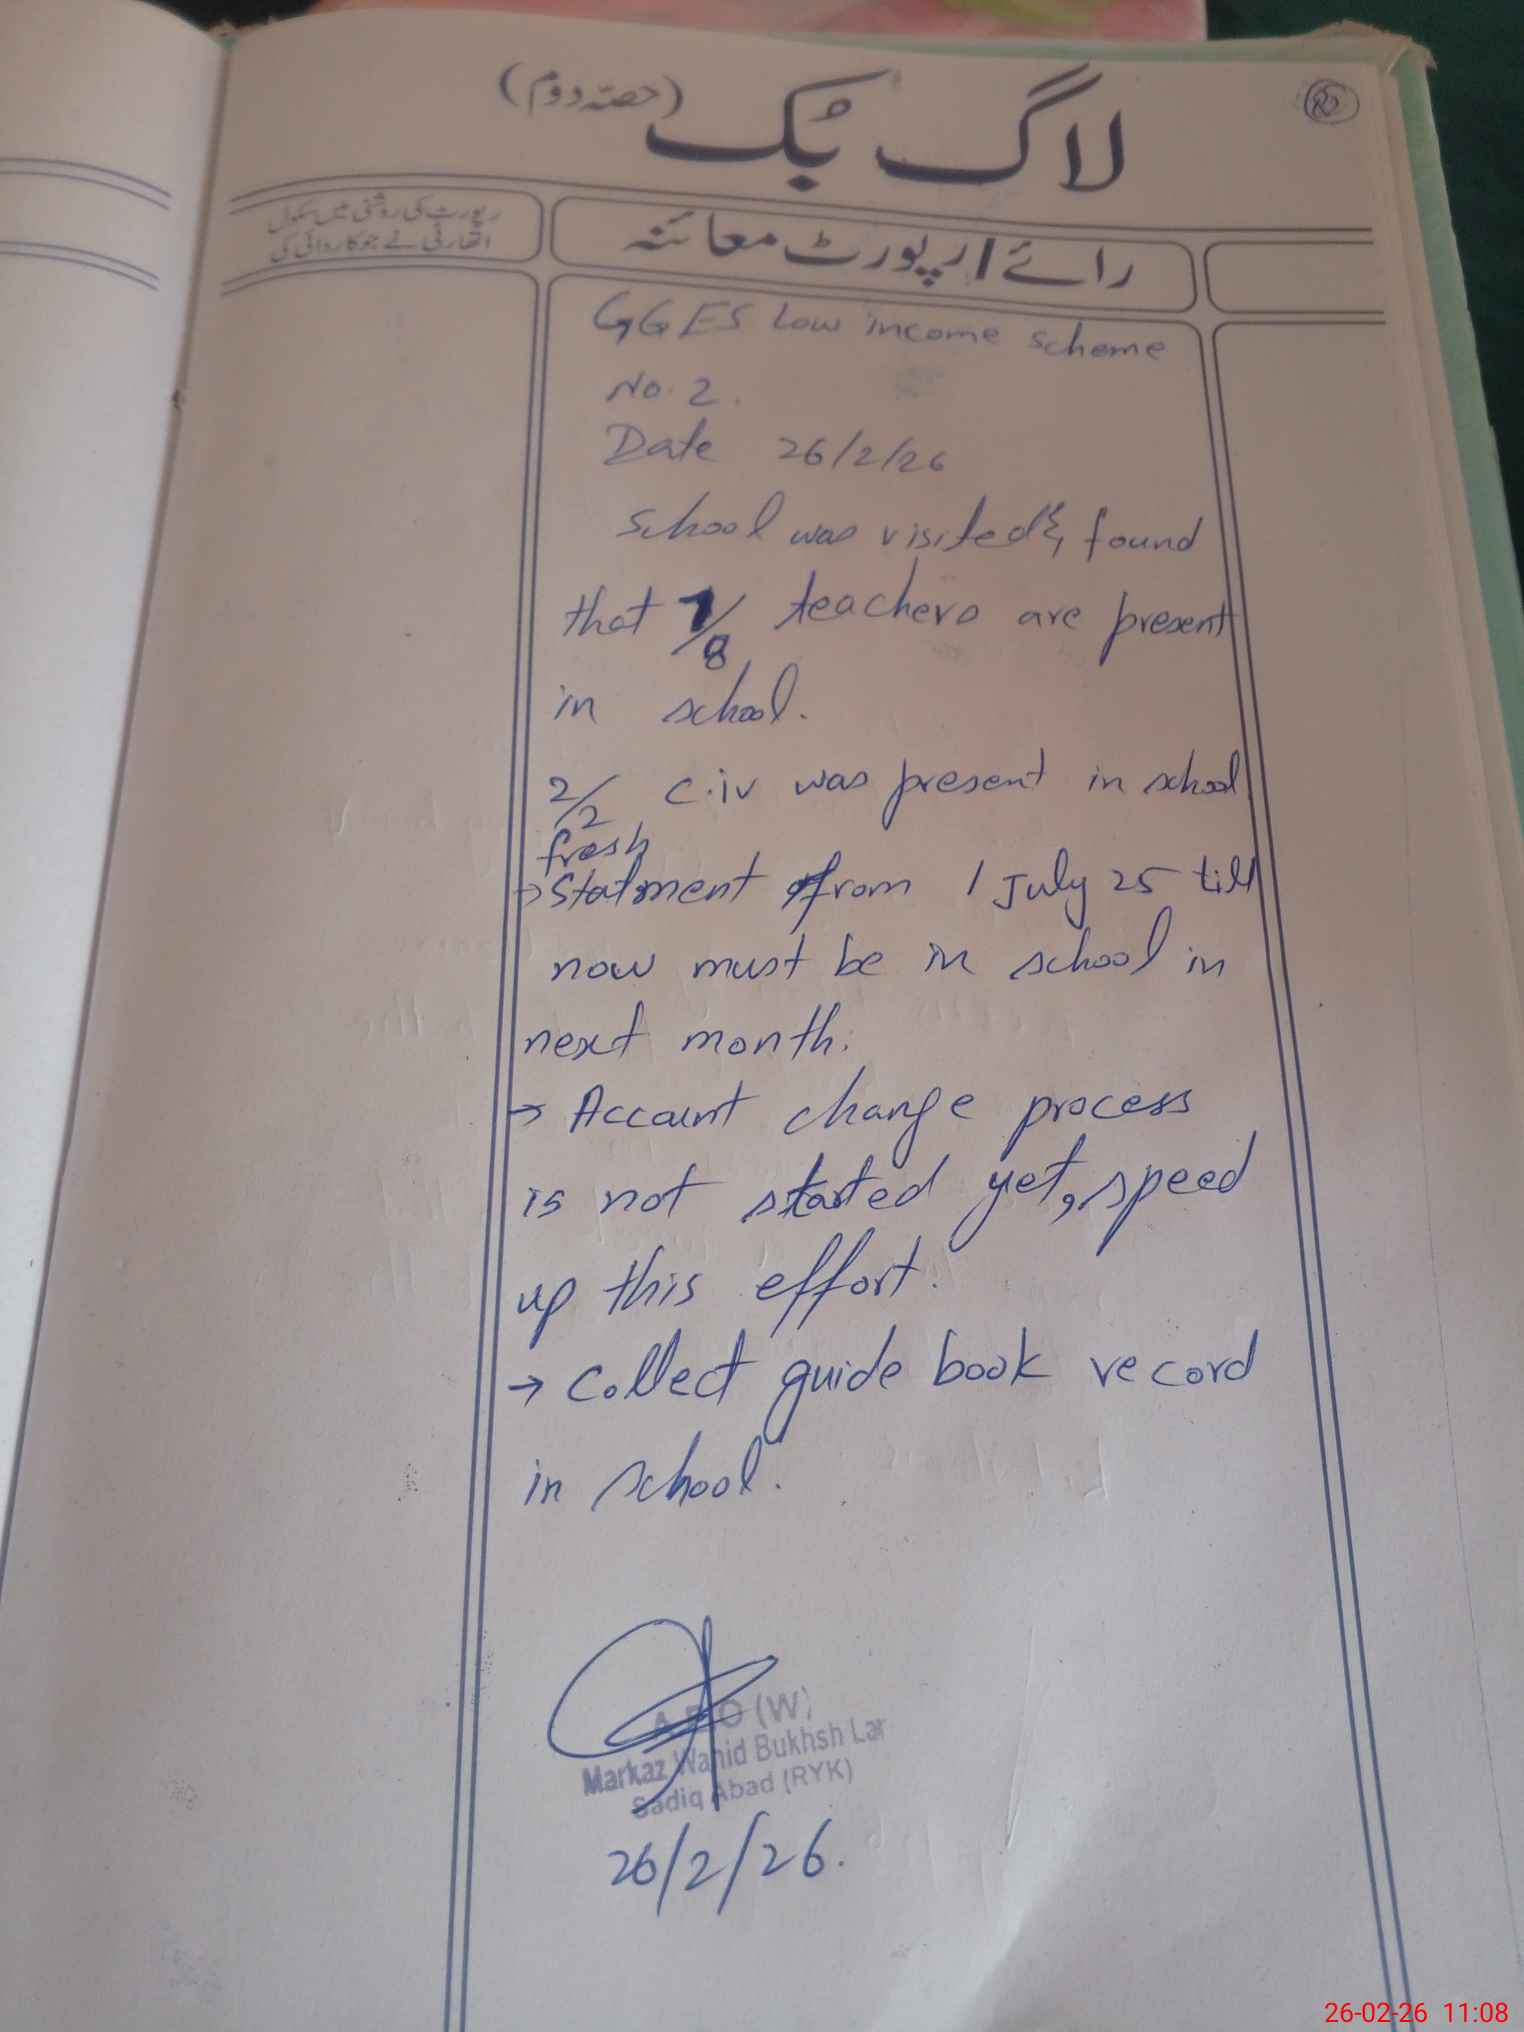 لاگ بک (حصّہ دوم)
رپورٹ کی روشنی میں سکول
اتھارٹی نے جو کاروائی کی
رائے / رپورٹ معائنہ
GGES Low income scheme
No. 2.
Date 26/2/26
School was visited & found
that 7/8 teachers are present
in school.
2/2 C.iv was present in school
fresh
→ Statment from 1 July 25 till
now must be in school in
next month.
→ Account change process
is not started yet, speed
up this effort.
→ Collect guide book record
in school.
A.E.O (W)
Markaz Wahid Bukhsh Lar
Sadiq Abad (RYK)
26/2/26.
26-02-26 11:08